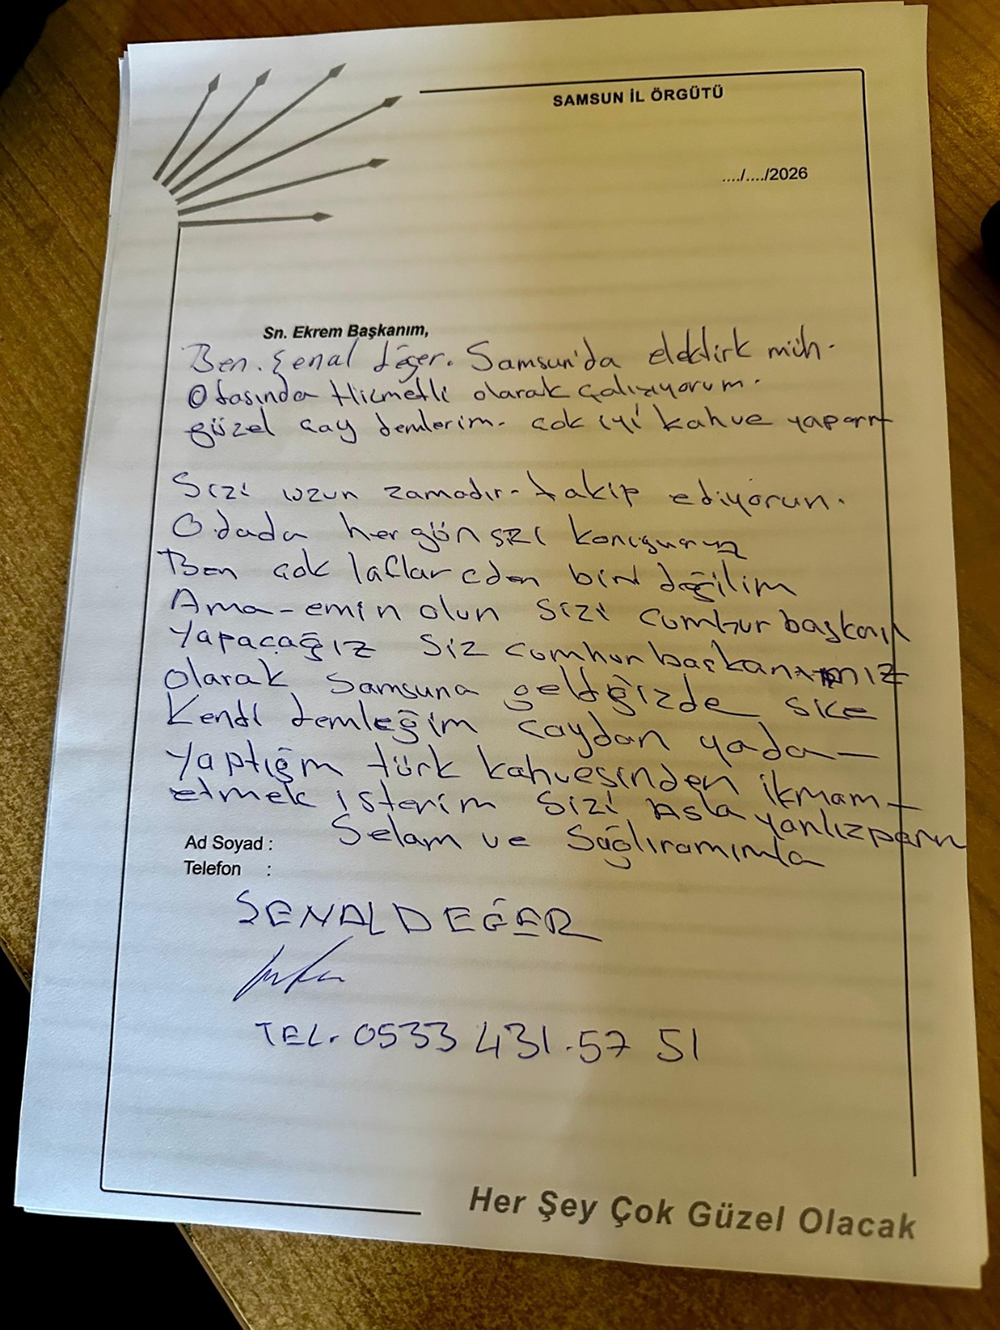 SAMSUN İL ÖRGÜTÜ
..../..../2026
Sn. Ekrem Başkanım,
Ben. Şenal Değer. Samsun'da elektirk müh.
Odasında Hizmetli olarak çalışıyorum.
güzel çay demlerim. çok iyi kahve yaparım
Sizi uzun zamadır takip ediyorun.
Odada hergün sizi konuşuruz
Ben çok laflar eden biri değilim
Ama emin olun sizi cumhur başkanı
Yapacağız siz cumhurbaşkanımız
olarak Samsuna geldiğizde size
Kendi demleğim çaydan yada
yaptığım türk kahvesinden ikmam
etmek isterim sizi Asla yanlızparın
Selam ve Sağlıramımla
Ad Soyad :
Telefon :
ŞENAL DEĞER
TEL. 0533 431.57 51
Her Şey Çok Güzel Olacak